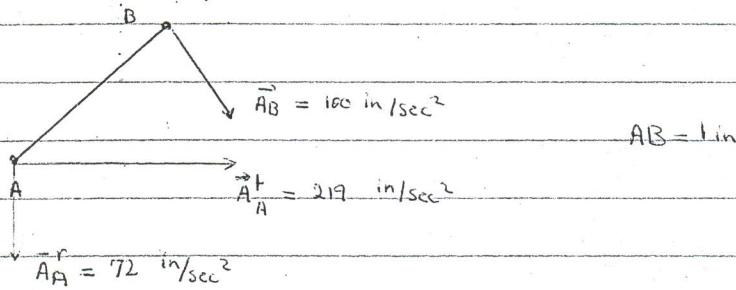 B
A⃗_B = 100 in/sec²
AB = 1 in
A
A⃗ᵗ_A = 219 in/sec²
A̅ʳ_A = 72 in/sec²